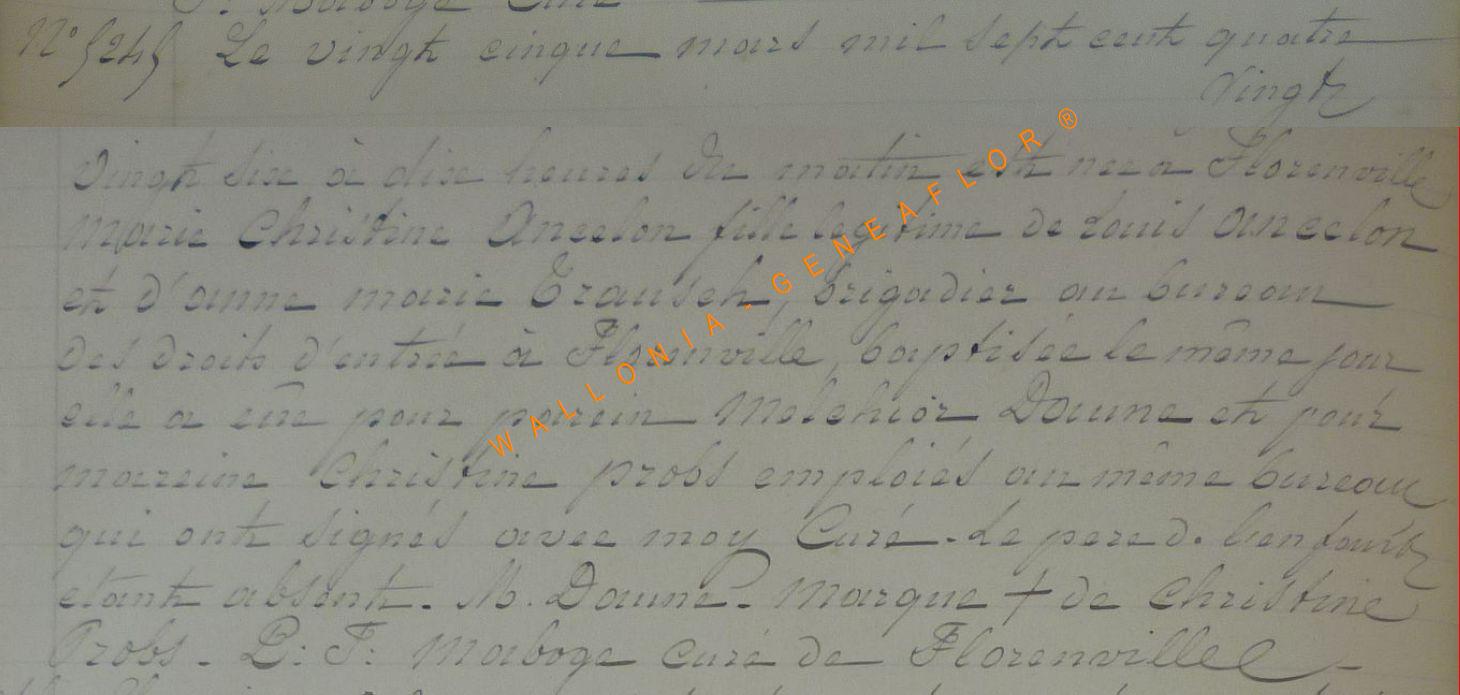 P. Maboge Curé
N° 5245 Le vingt cinque mars mil sept cent quatre
vingt
vingt six à dix heures du matin est nee a Florenville
marie Christine Ancelon fille legitime de Louis ancelon
et d'anne marie Trausch, brigadier au bureau
des droits d'entrée à Florenville, baptisée le même jour
elle a eüe pour parein Melchior Daune et pour
mareine Christine probs emploiés au même bureau
qui ont signés avec moy Curé. Le pere d. l'enfant
etant absent. M. Daune. Marque + de Christine
Probs. P: J: Maboge curé de Florenville
WALLONIA - GENEAFLOR ®